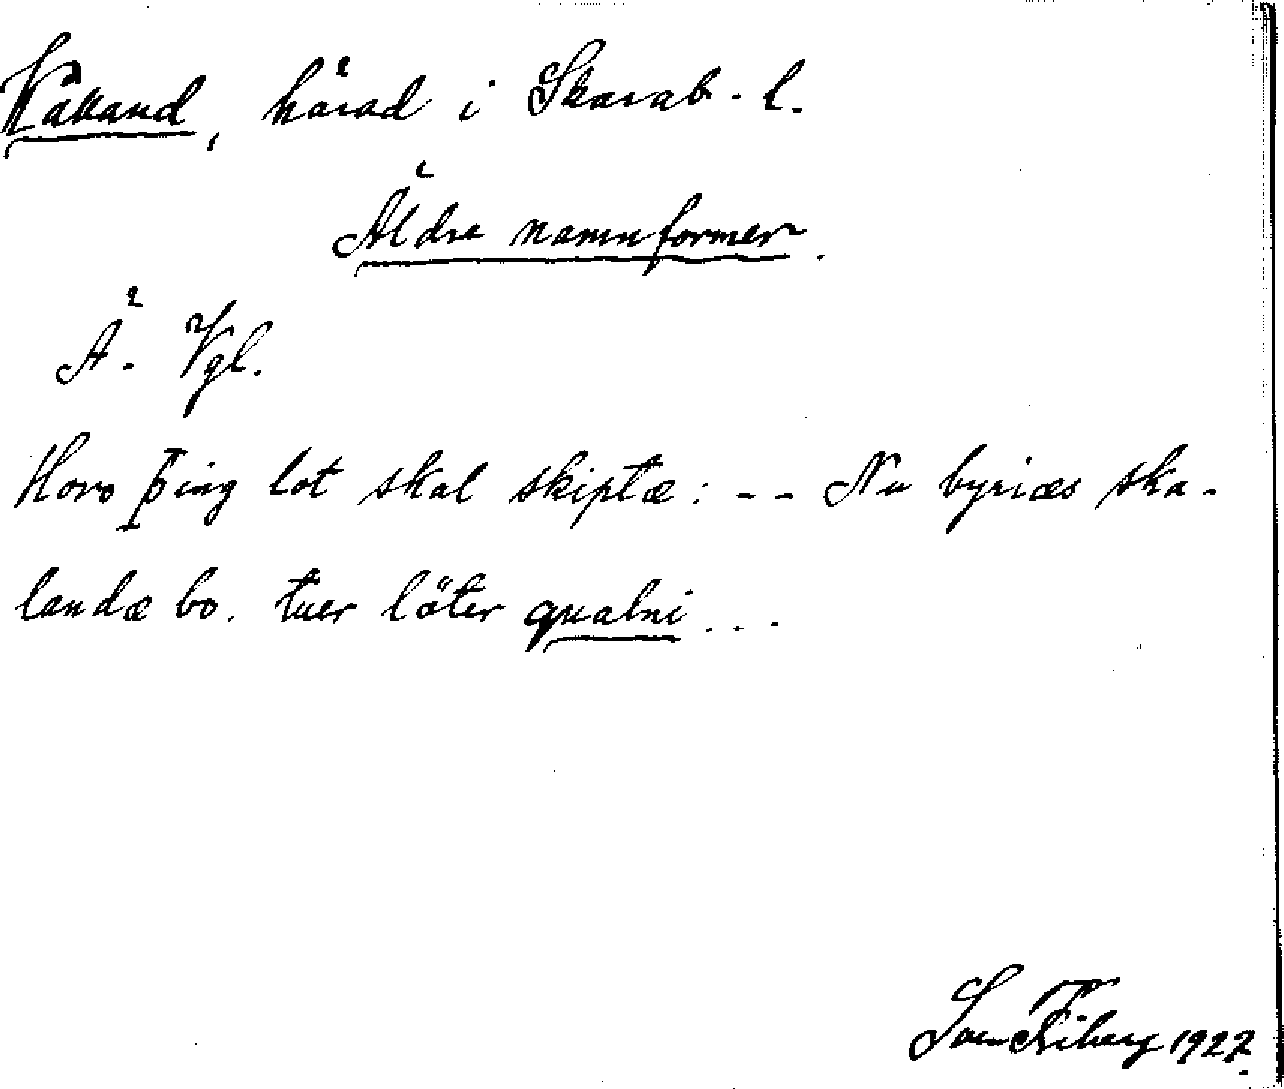 Kåkand, härad i Skarab. l.
Äldre namnformer.
Ä. Vgl.
Horo þing lot skal skiptæ: -- Nu byriæs ska-
landæ bo. tuer löter qualni...
1927.